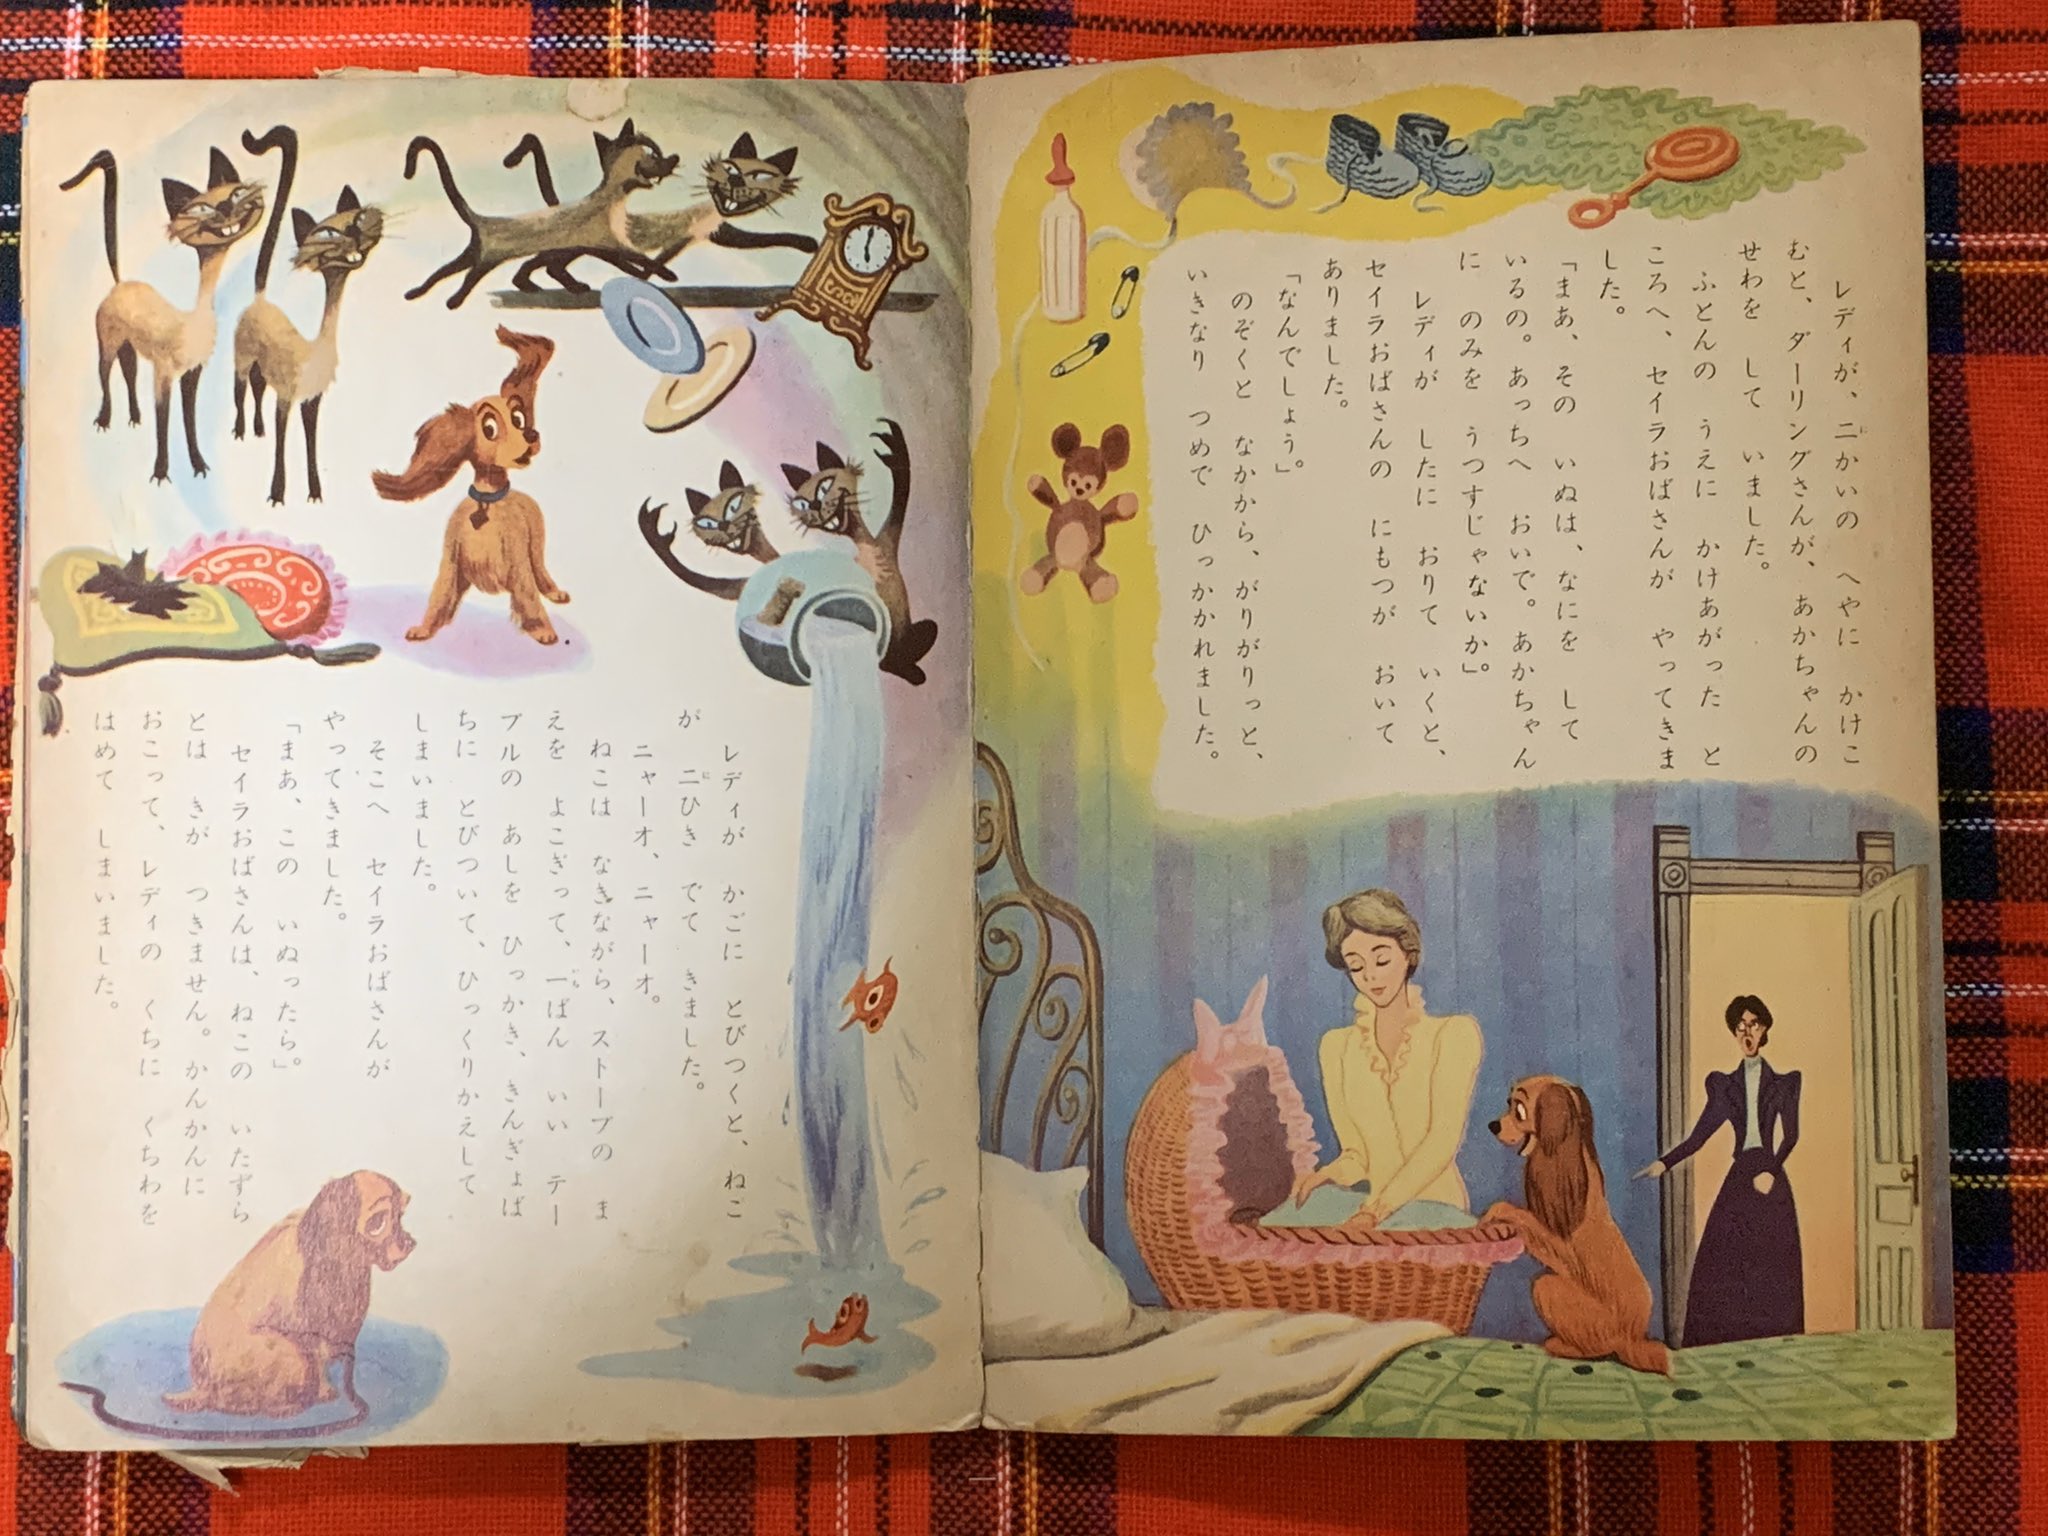 レディが、二かいの へやに かけこ
むと、ダーリングさんが、あかちゃんの
せわを して いました。
ふとんの うえに かけあがった と
ころへ、セイラおばさんが やってきま
した。
「まあ、その いぬは、なにを して
いるの。あっちへ おいで。あかちゃん
に のみを うつすじゃないか」。
レディが したに おりて いくと、
セイラおばさんの にもつが おいて
ありました。
「なんでしょう」。
のぞくと なかから、がりがりっと、
いきなり つめで ひっかかれました。
レディが かごに とびつくと、ねこ
が 二ひき でて きました。
ニャーオ、ニャーオ。
ねこは なきながら、ストーブの ま
えを よこぎって、一ばん いい テー
ブルの あしを ひっかき、きんぎょば
ちに とびついて、ひっくりかえして
しまいました。
そこへ セイラおばさんが
やってきました。
「まあ、この いぬったら」。
セイラおばさんは、ねこの いたずら
とは きが つきません。かんかんに
おこって、レディの くちに くちわを
はめて しまいました。